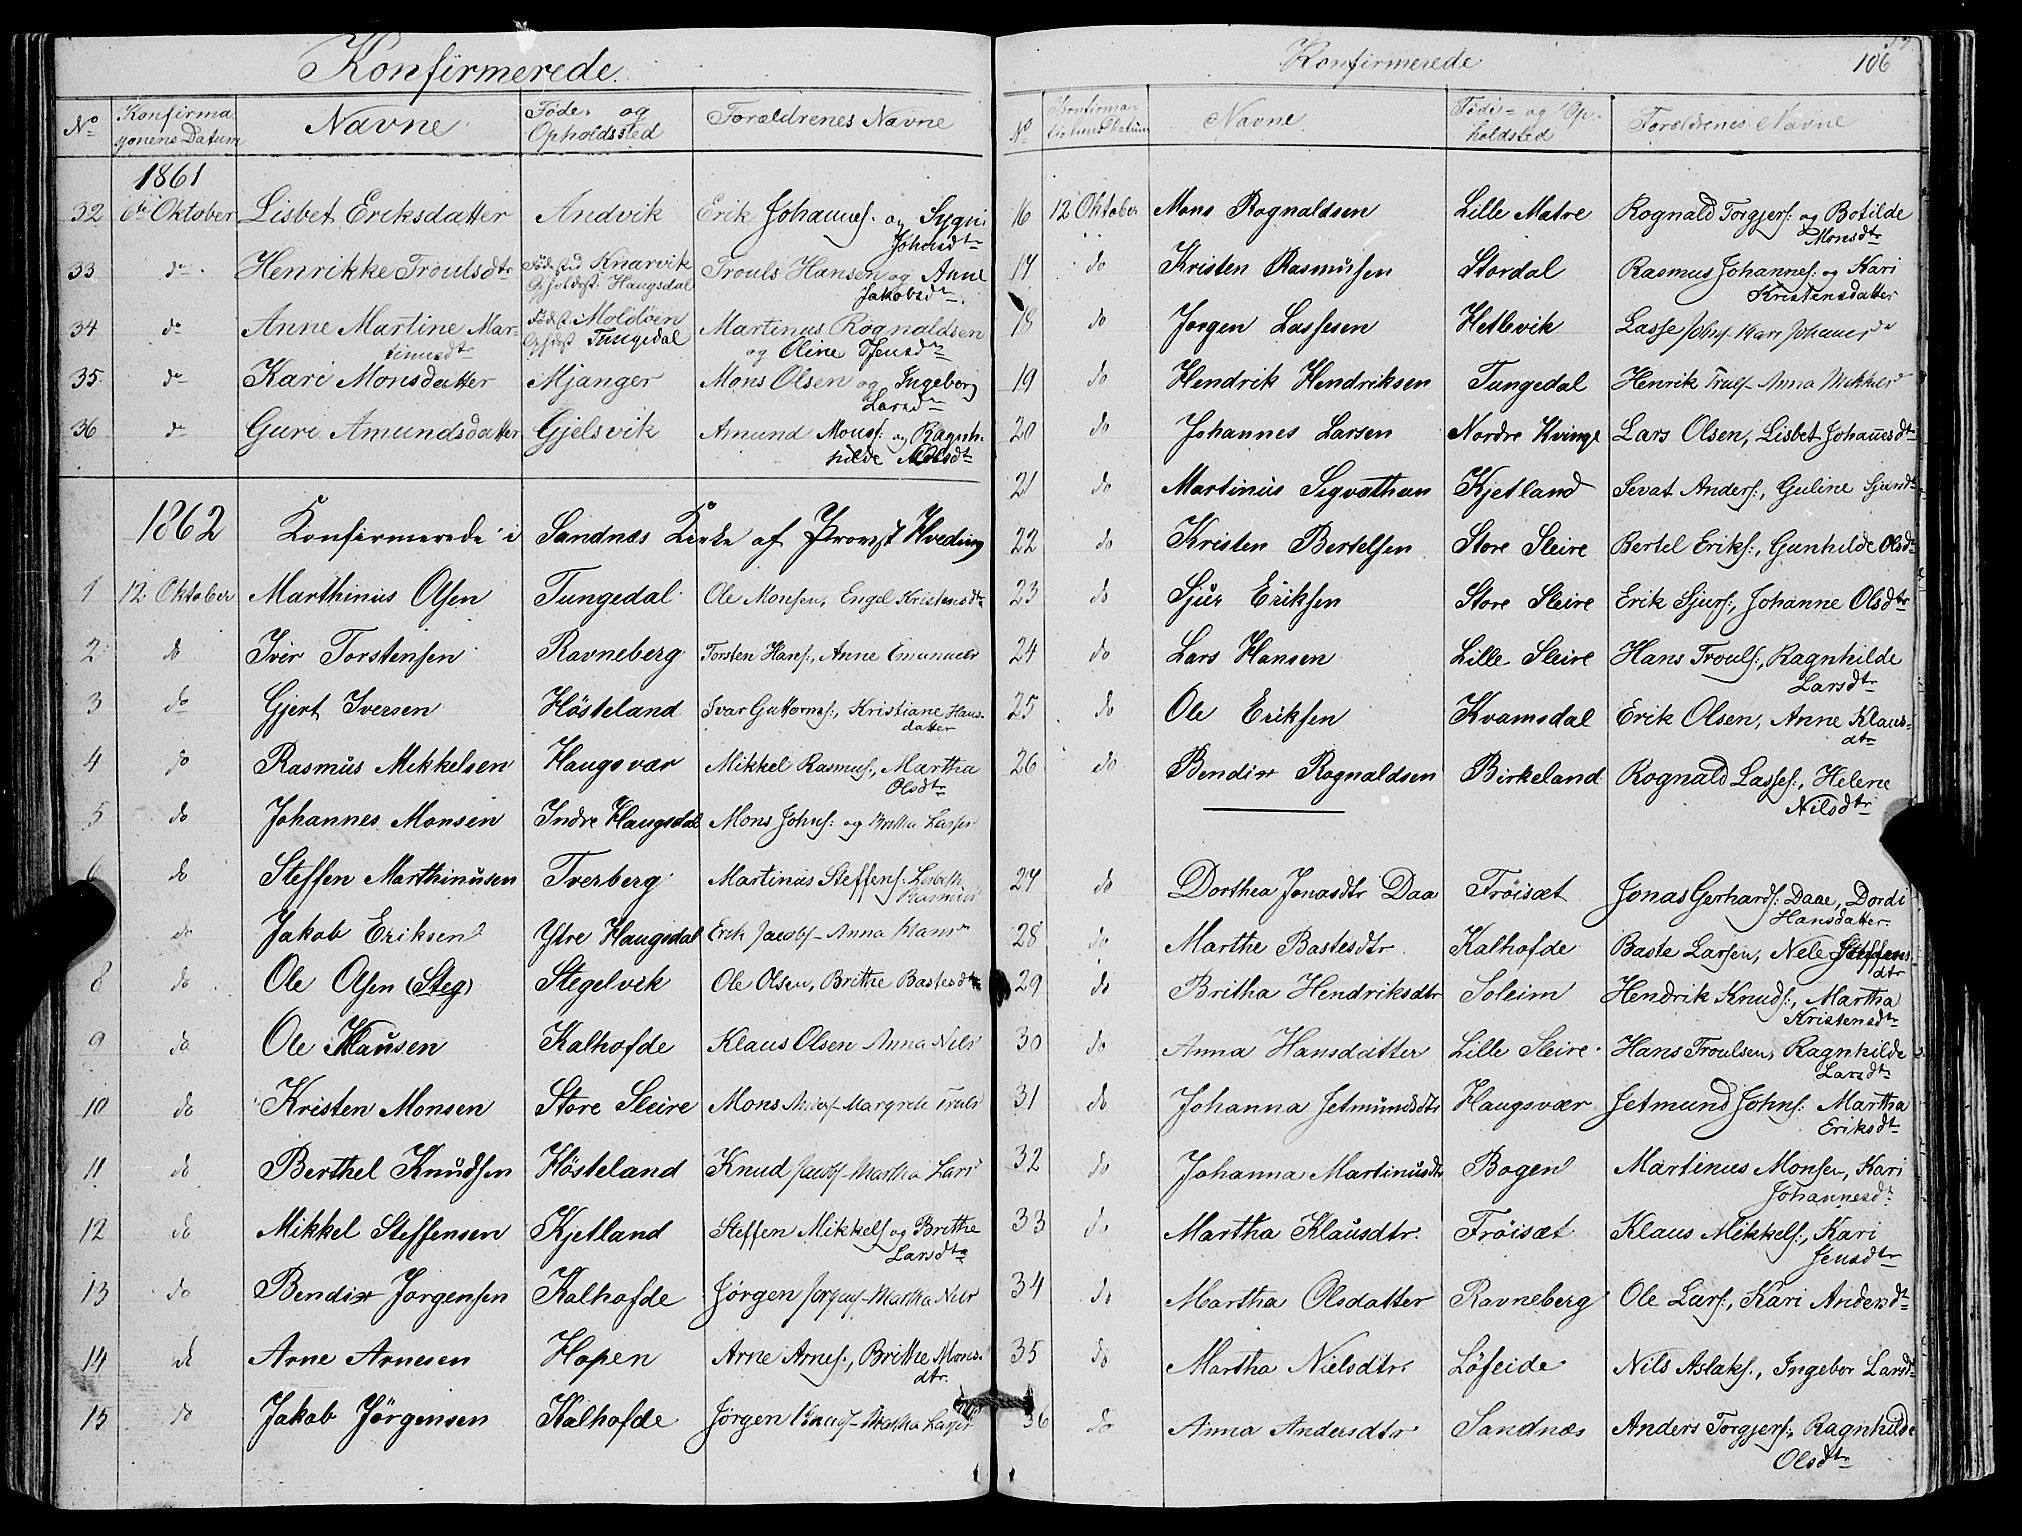 Konfirmerede.
No Konfirmationens Datum Navne Føde- og Opholdssted Forældrenes Navne
1861
32 6te Oktober Lisbet Eriksdatter Andvik Erik Johannes: og Sygni
Johnsdtr
33 do Henrikke Troulsdtr Fødested Knarvik Trouls Hansen og Anne
Opholdst: Haugsdal Jakobsdtr.
34 do Anne Martine Mar- Fødest: Moldøen Martinus Rognaldsen
tinusdtr Opholdst Tungedal og Oline Jensdtr
35 do Kari Monsdatter Mjanger Mons Olsen og Ingeborg
Larsdtr
36 do Guri Amundsdatter Gjelsvik Amund Monss: og Ragn-
hilde
1862 Konfirmerede i Sandnæs Kirke af Provst Hveding
1 12. Oktober Marthinus Olsen Tungedal Ole Monsen, Engel Kristensdtr
2 do Iver Torstensen Ravneberg Torsten Hans:, Anne Emanuels
3 do Gjert Iversen Høsteland Ivar Guttorms:, Kristiane Hans-
datter
4 do Rasmus Mikkelsen Haugsvær Mikkel Rasmus:, Martha
Olsdtr
5 do Johannes Monsen Indre Haugsdal Mons Johns: og Britha Lasses
6 do Steffen Marthinusen Tverberg Martinus Steffens:
do Jakob Eriksen Ytre Haugsdal Erik Jacobs- Anna Klausd
8 do Ole Olsen (Steg) Stegelvik Ole Olsen, Brithe Bastesdtr
9 do Ole Klausen Kalhofde Klaus Olsen Anna Nils
10 do Kristen Monsen Store Sleire Mons Margrete Truls
11 do Berthel Knudsen Høsteland Knud Jacobs- Martha Lars
12 do Mikkel Steffensen Kjetland Steffen Mikkels og Brithe
Larsdtr
13 do Bendix Jørgensen Kalhofde Jørgen Martha Nils
14 do Arne Arnesen Hopen Arne Arnes:, Brithe Mons-
dtr.
15 do Jakob Jørgensen Kalhofde Jørgen Knuds- Martha Lasses
Konfirmerede
106
No Konfirmationens Datum Navne Føde- og Opholdsted Foreldrenes Navne
16 12 Oktober Mons Rognaldsen Lille Matre Rognald Torgjers: og Botilde
Monsdtr
17 do Kristen Rasmussen Stordal Rasmus Johannes: og Kari
Kristensdatter
18 do Jørgen Lassesen Hetlevik Lasse Johns- Kari Johannes
19 do Hendrik Hendriksen Tungedal Henrik Truls- Anna Mikkels
20 do Johannes Larsen Nordre Kvinge Lars Olsen, Lisbet Johanesdtr
21 do Martinus Kjetland Sevat Anders:, Guline
22 do Kristen Bertelsen Store Sleire Bertel Eriks:, Gunhilde Olsdtr
23 do Sjur Eriksen Store Sleire Erik Sjurs:, Johanne Olsdtr
24 do Lars Hansen Lille Sleire Hans Trouls:, Ragnhilde
Larsdtr
25 do Ole Eriksen Kvamsdal Erik Olsen, Anne Klaus-
dtr
26 do Bendix Rognaldsen Birkeland Rognald Lasses:, Helene
Nilsdtr
27 do Dorthea Jonasdtr Daa Frøisæt Jonas Gerhards: Daae, Dordi
Hansdatter
28 do Marthe Bastesdtr Kalhofde Baste Larsen, Nele Steffens-
dtr
29 do Britha Hendriksdtr Soleim Hendrik Knuds:, Martha
Kristensdtr
30 do Anna Hansdatter Lille Sleire Hans Troulsen, Ragnhilde
Larsdtr
31 do Johanna Jetmundsdtr Haugsvær Jetmund Johns: Martha
Eriksdtr
32 do Johanna Martinusdtr Bogen Martinus Monsen, Kari
Johannesdr
33 do Martha Klausdtr: Frøisæt Klaus Mikkels:, Kari
Jensdtr
34 do Martha Olsdatter Ravneberg Ole Lars:, Kari Andersdtr
35 do Martha Nielsdtr. Løfeide Nils Aslaks:, Ingebor Larsdtr
36 do Anna Andersdtr Sandnæs Anders Torgjers:, Ragnhilde
Olsdtr